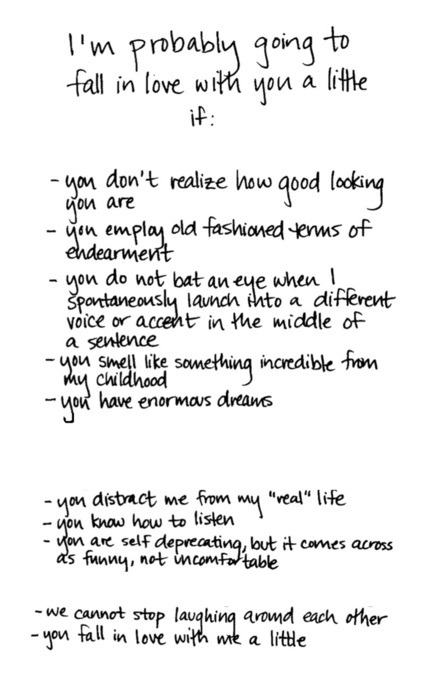 I'm probably going to
fall in love with you a little
if:
- you don't realize how good looking
you are
- you employ old fashioned terms of
endearment
- you do not bat an eye when I
spontaneously launch into a different
voice or accent in the middle of
a sentence
- you smell like something incredible from
my childhood
- you have enormous dreams
- you distract me from my "real" life
- you know how to listen
- you are self deprecating, but it comes across
as funny, not uncomfortable
- we cannot stop laughing around each other
- you fall in love with me a little